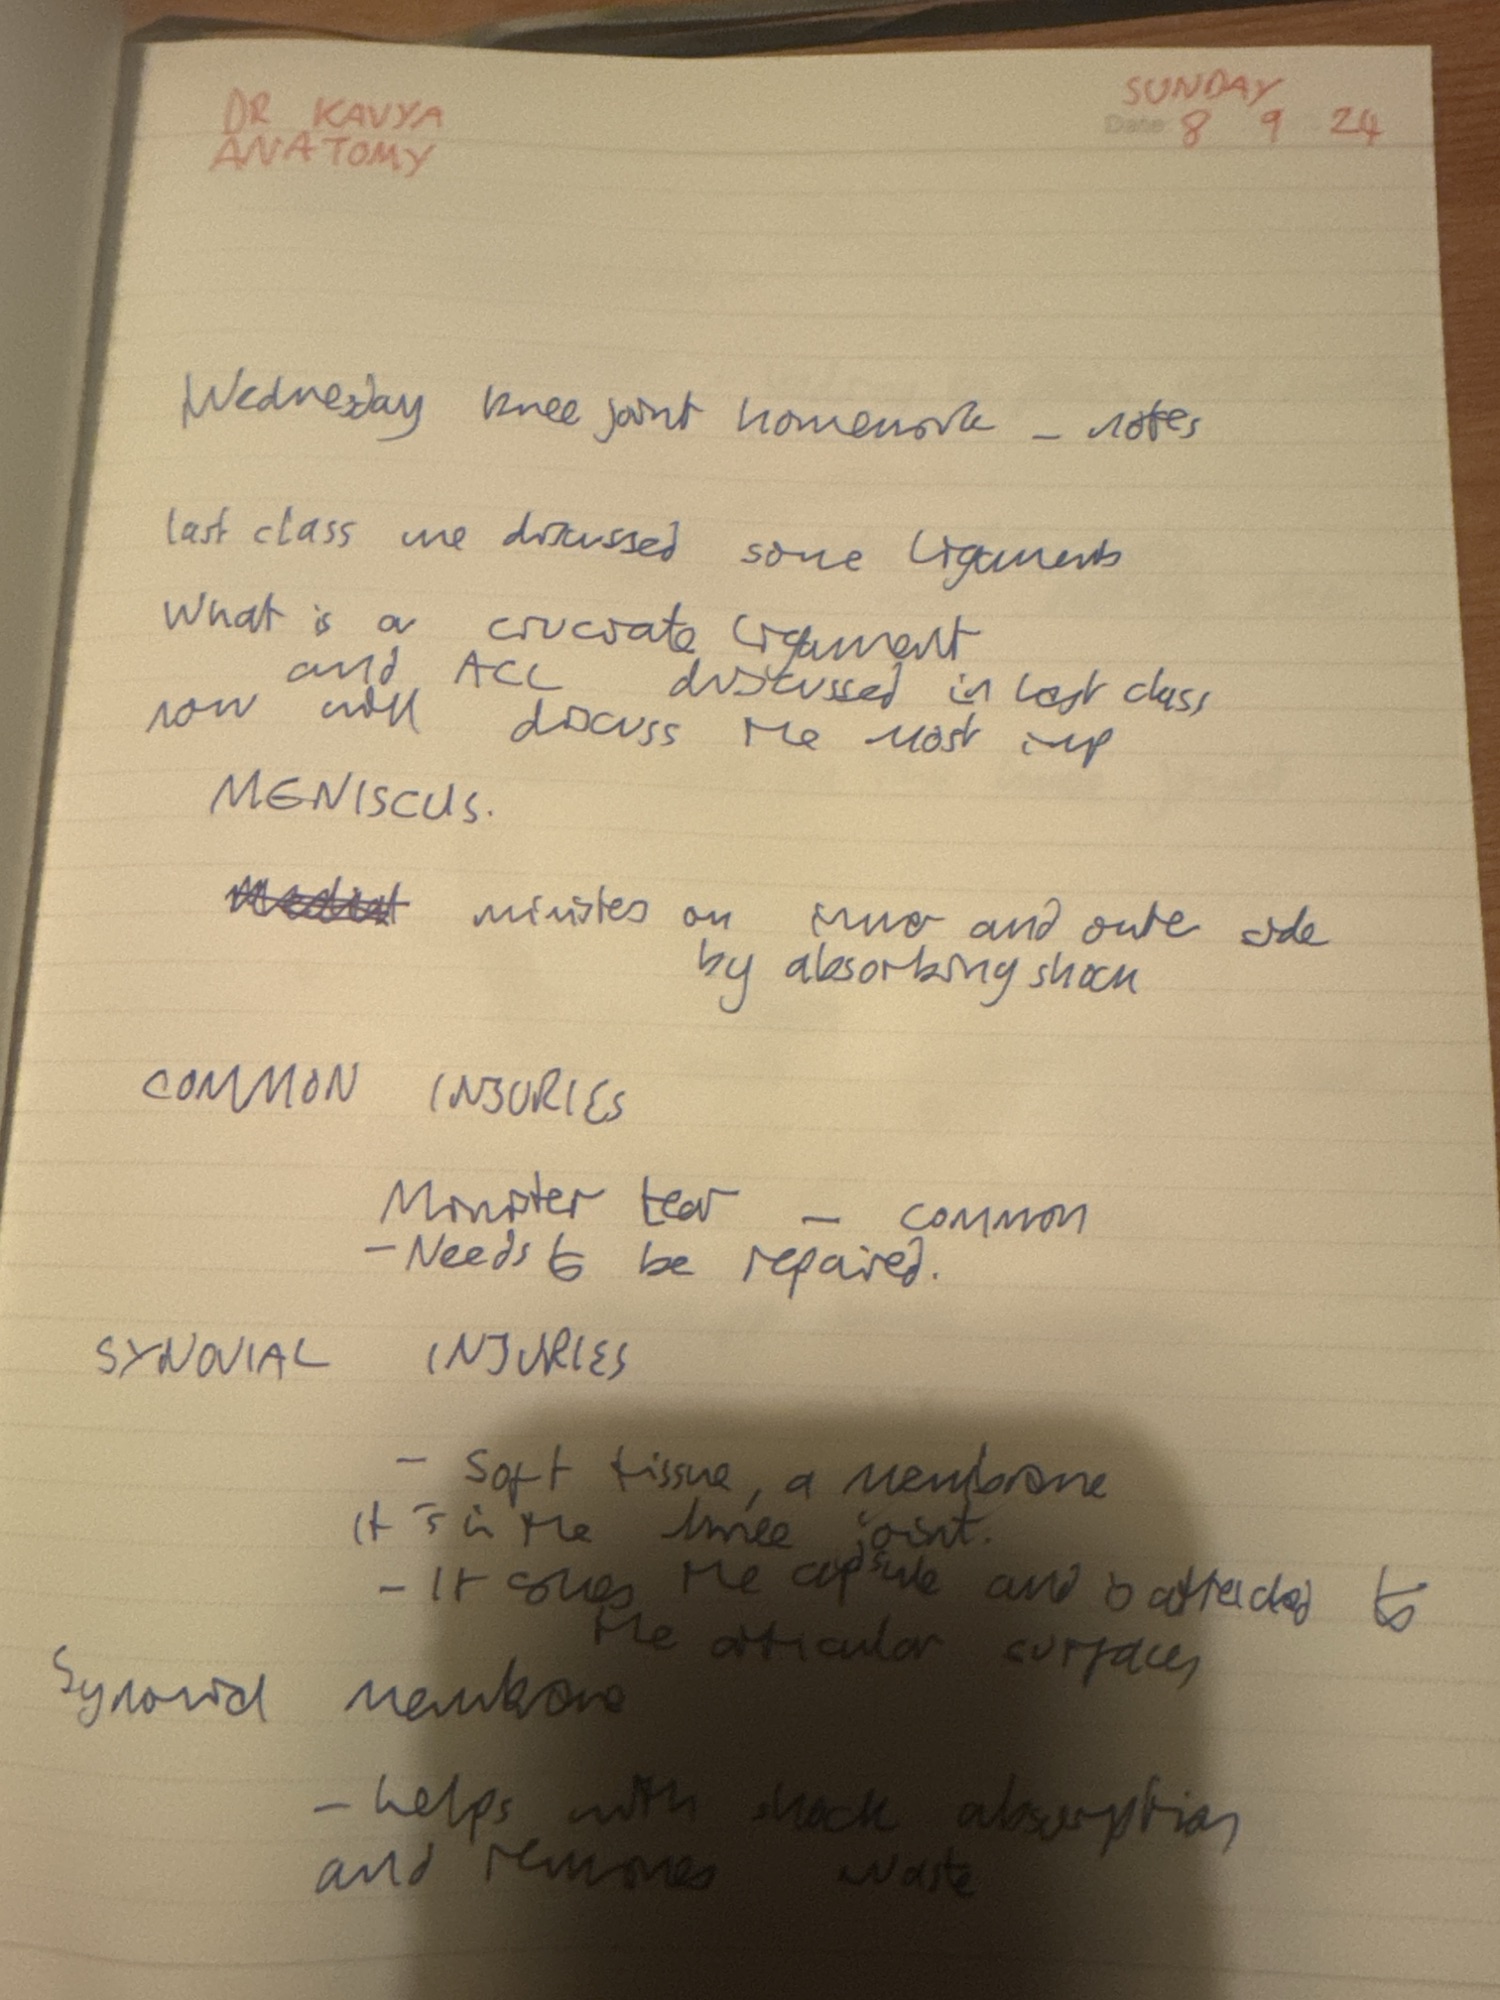 DR KAVYA
ANATOMY
SUNDAY
Date 8 9 24
Wednesday knee joint homework - notes
last class we discussed some ligaments
What is a cruciate ligament
and ACL discussed in last class
now will discuss the most imp
MENISCUS.
on inner and outer side
by absorbing shock
COMMON INJURIES
tear - common
- Needs to be repaired.
SYNOVIAL INJURIES
- Soft tissue, a membrane
It is in the knee joint.
- It the capsule and is attached to
the articular surfaces
Synovial membrane
- helps with shock absorption
and removes waste